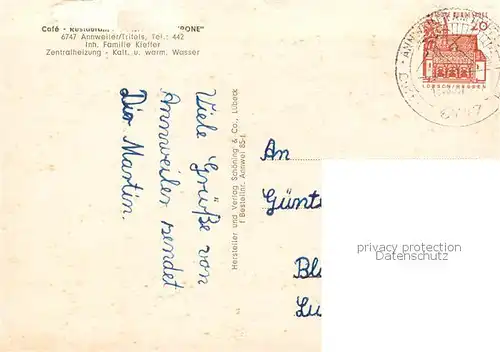 Café - Restaurant - RONE"
6747 Annweiler/Trifels, Tel.: 442
Inh. Familie Kieffer
Zentralheizung - Kalt. u. warm. Wasser
Viele Grüße von
Annweiler sendet
Dir Martin.
Hersteller und Verlag Schöning & Co., Lübeck
Bestellnr. Annwei 85-f.
An
Günt
Bl
Lu
20
LORSCH/HESSEN
privacy protection
watermark